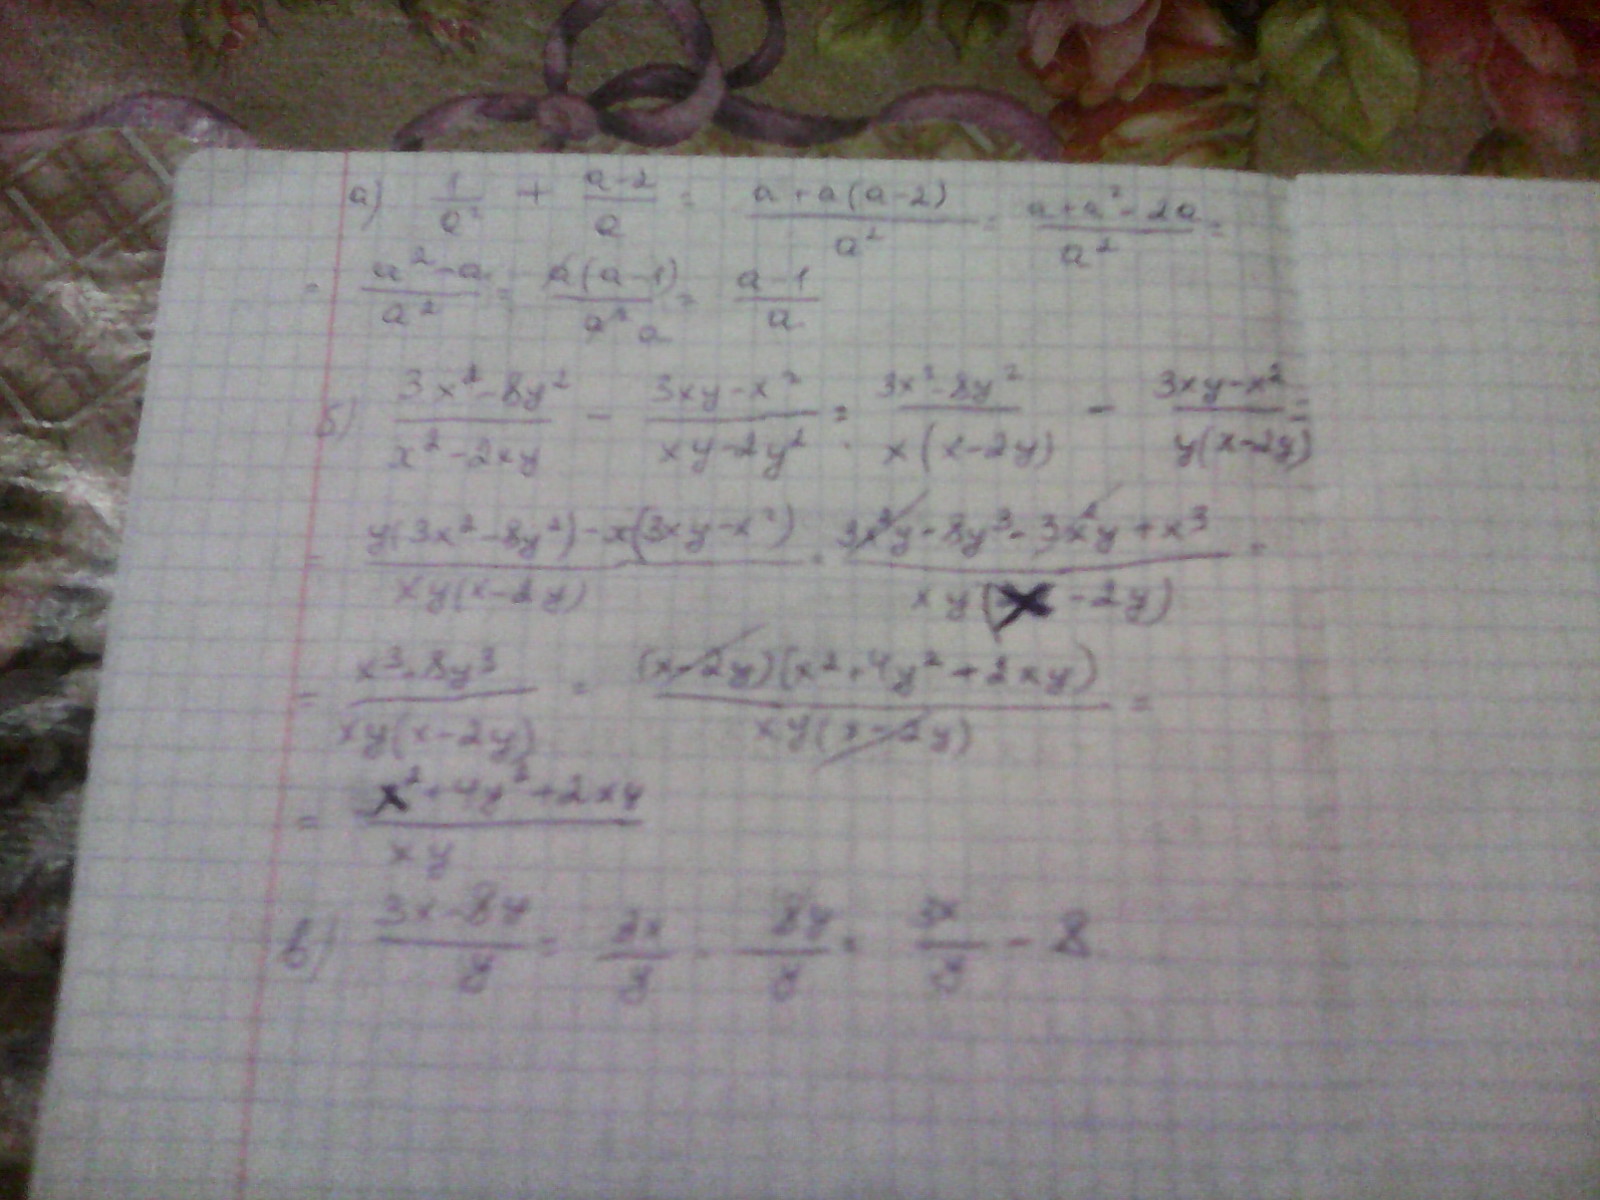 а) 1/a² + (a-2)/a = (a+a(a-2))/a² = (a+a²-2a)/a² =
= (a²-a)/a² = a(a-1)/a² a = (a-1)/a
б) (3x²-8y²)/(x²-2xy) - (3xy-x²)/(xy-2y²) = (3x²-8y²)/(x(x-2y)) - (3xy-x²)/(y(x-2y)) =
= (y(3x²-8y²)-x(3xy-x²))/(xy(x-2y)) = (3x²y-8y³-3x²y+x³)/(xy(x-2y)) =
= (x³-8y³)/(xy(x-2y)) = ((x-2y)(x²+4y²+2xy))/(xy(x-2y)) =
= (x²+4y²+2xy)/(xy)
в) (3x-8y)/y = 3x/y - 8y/y = 3x/y - 8